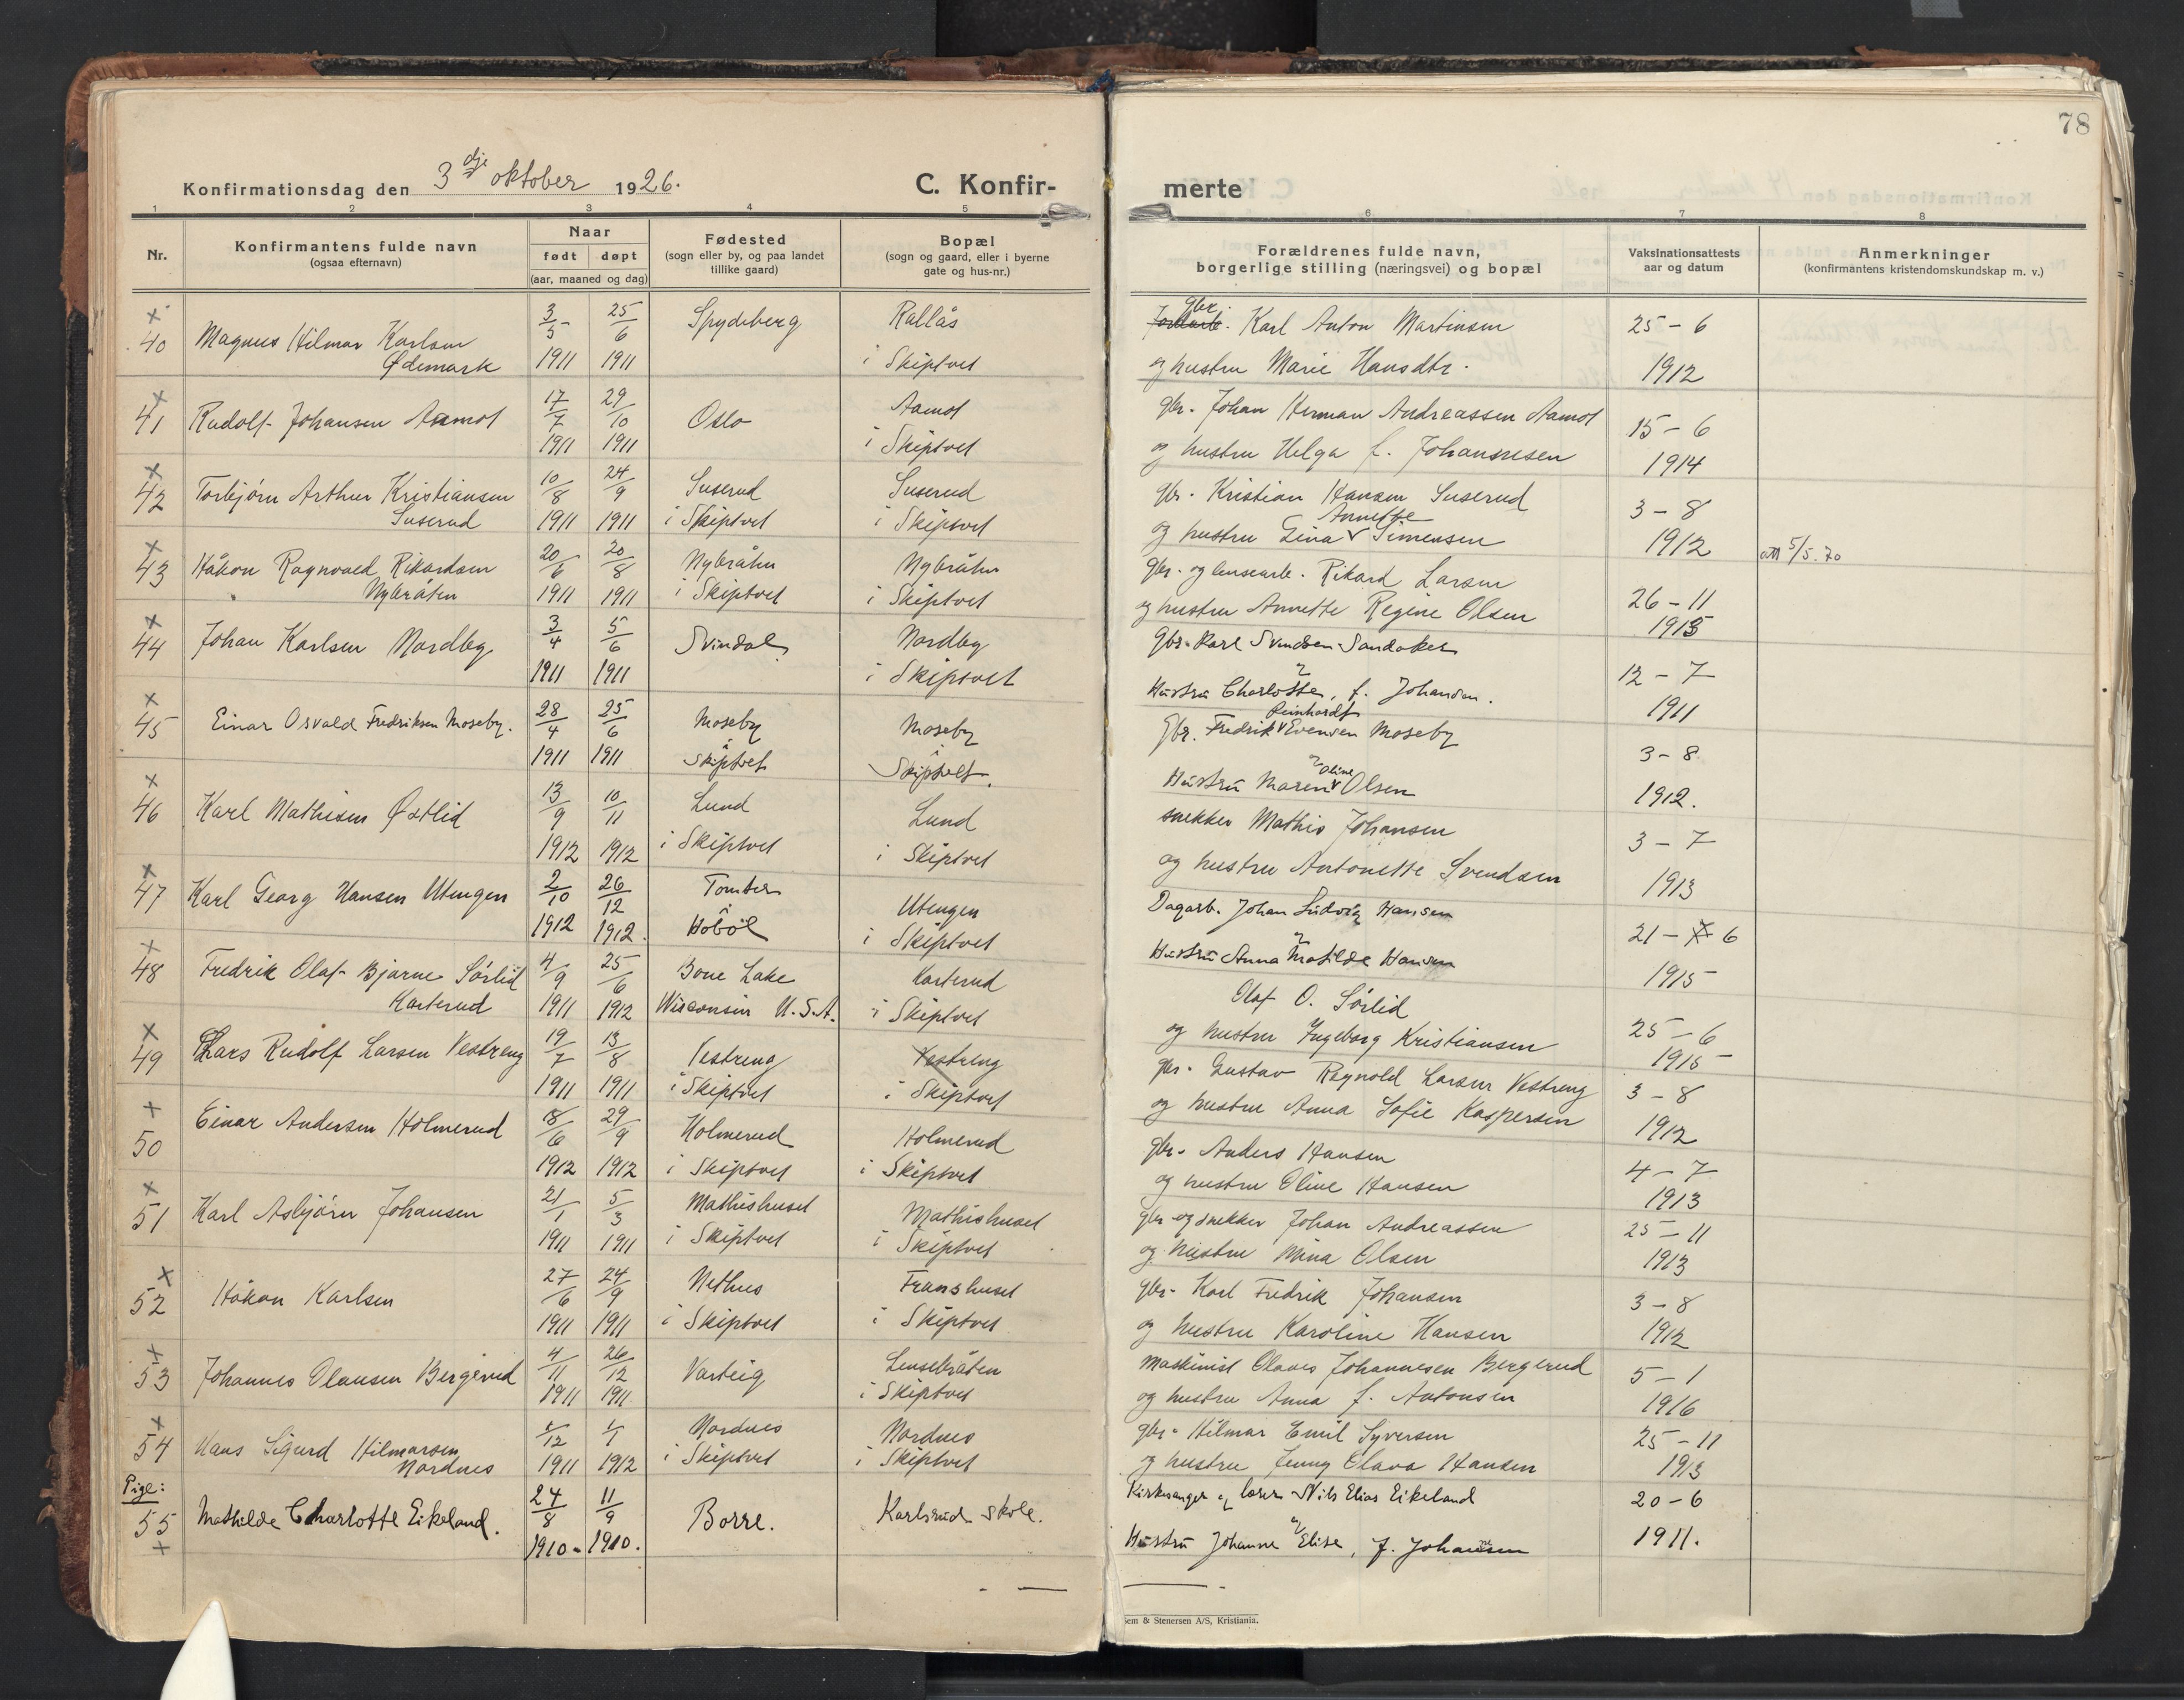 78
Konfirmationsdag den 3dje oktober 1926.
C. Konfir-
merte
1 2 3 4 5
6 7 8
Nr.
Konfirmantens fulde navn
(ogsaa efternavn)
Naar
født døpt
(aar, maaned og dag)
Fødested
(sogn eller by, og paa landet
tillike gaard)
Bopæl
(sogn og gaard, eller i byerne
gate og hus-nr.)
Forældrenes fulde navn,
borgerlige stilling (næringsvei) og bopæl
Vaksinationsattests
aar og datum
Anmerkninger
(konfirmantens kristendomskundskap m. v.)
× 40 Magnus Hilmar Karlsen 3/5 25/6 Spydeberg Rallås gbr. Karl Anton Martinsen 25 - 6
Ødemark 1911 1911 i Skiptvet og hustru Marie Hansdtr. 1912
× 41 Rudolf Johansen Aamot 17/7 29/10 Oslo Aamot gbr. Johan Herman Andreassen Aamot 15 - 6
1911 1911 i Skiptvet og hustru Helga f. Johannesen 1914
× 42 Torbjørn Arthur Kristiansen 10/8 24/9 Suserud Suserud gbr. Kristian Hansen Suserud 3 - 8
Suserud 1911 1911 i Skiptvet i Skiptvet og hustru Gina Annette Simensen 1912
× 43 Håkon Ragnvald Rikardsen 20/6 20/8 Nybråten Nybråten gbr. og lensearb. Rikard Larsen 26 - 11 att 5/5.70
Nybråten 1911 1911 i Skiptvet i Skiptvet og hustru Annette Regine Olsen 1915
× 44 Johan Karlsen Nordby 3/4 5/6 Svindal Nordby gbr. Karl Svendsen Sandaker 12 - 7
1911 1911 i Skiptvet og Hustru Charlotte, f. Johansen. 1911
× 45 Einar Osvald Fredriksen Moseby. 28/4 25/6 Moseby Moseby Gbr. Fredrik Reinhardt Evensen Moseby 3 - 8
1911 1911 i Skiptvet i Skiptvet. og Hustru Maren Oline Olsen 1912.
× 46 Karl Mathisen Østlid 13/9 10/11 Lund Lund snekker Mathis Johansen 3 - 7
1912 1912 i Skiptvet i Skiptvet og hustru Antonette Svendsen 1913
× 47 Karl Georg Hansen Utengen 2/10 26/12 Tomter Utengen Dagarb. Johan Ludvig Hansen 21 - 6
1912 1912. i Hobøl i Skiptvet og Hustru Anna Matilde Hansen 1915
× 48 Fredrik Olaf Bjarne Sørlid 4/9 25/6 Bone Lake Karterud Olaf O. Sørlid 25 - 6
Karterud 1911 1912 Wisconsin U.S.A. i Skiptvet og hustru Ingeborg Kristiansen 1915
× 49 Lars Rudolf Larsen Vestreng 19/7 13/8 Vestreng Vestreng gbr. Gustav Ragnold Larsen Vestreng 3 - 8
1911 1911 i Skiptvet i Skiptvet og hustru Anna Sofie Kaspersen 1912
× 50 Einar Andersen Holmerud 18/6 29/9 Holmerud Holmerud gbr. Anders Hansen 4 - 7
1912 1912 i Skiptvet i Skiptvet og hustru Oline Hansen 1913
× 51 Karl Asbjørn Johansen 21/1 5/3 Mathishuset Mathishuset gbr og snekker Johan Andreassen 25 - 11
1911 1911 i Skiptvet i Skiptvet og hustru Mina Olsen 1913
× 52 Håkon Karlsen 27/6 24/9 Nethus Franshuset gbr. Karl Fredrik Johansen 3 - 8
1911 1911 i Skiptvet i Skiptvet og hustru Karoline Hansen 1912
× 53 Johannes Olausen Bergerud 4/11 26/12 Varteig Lensebråten Maskinist Olaves Johannesen Bergerud 5 - 1
1911 1911. i Skiptvet og hustru Anna f. Antonsen 1916
× 54 Hans Sigurd Hilmarsen 1/12 1/1 Nordnes Nordnes gbr. Hilmar Emil Syversen 25 - 11
Nordnes 1911 1912 i Skiptvet i Skiptvet og hustru Jenny Olava Hansen 1913
Pige:
55 × Mathilde Charlotte Eikeland. 24/8 11/9 Borre. Karlsrud skole. Kirkesanger og lærer Nils Elias Eikeland 20 - 6
1910 - 1910. og Hustru Johanne Elise, f. Johansen 1911.
Sem & Stenersen A/S, Kristiania.